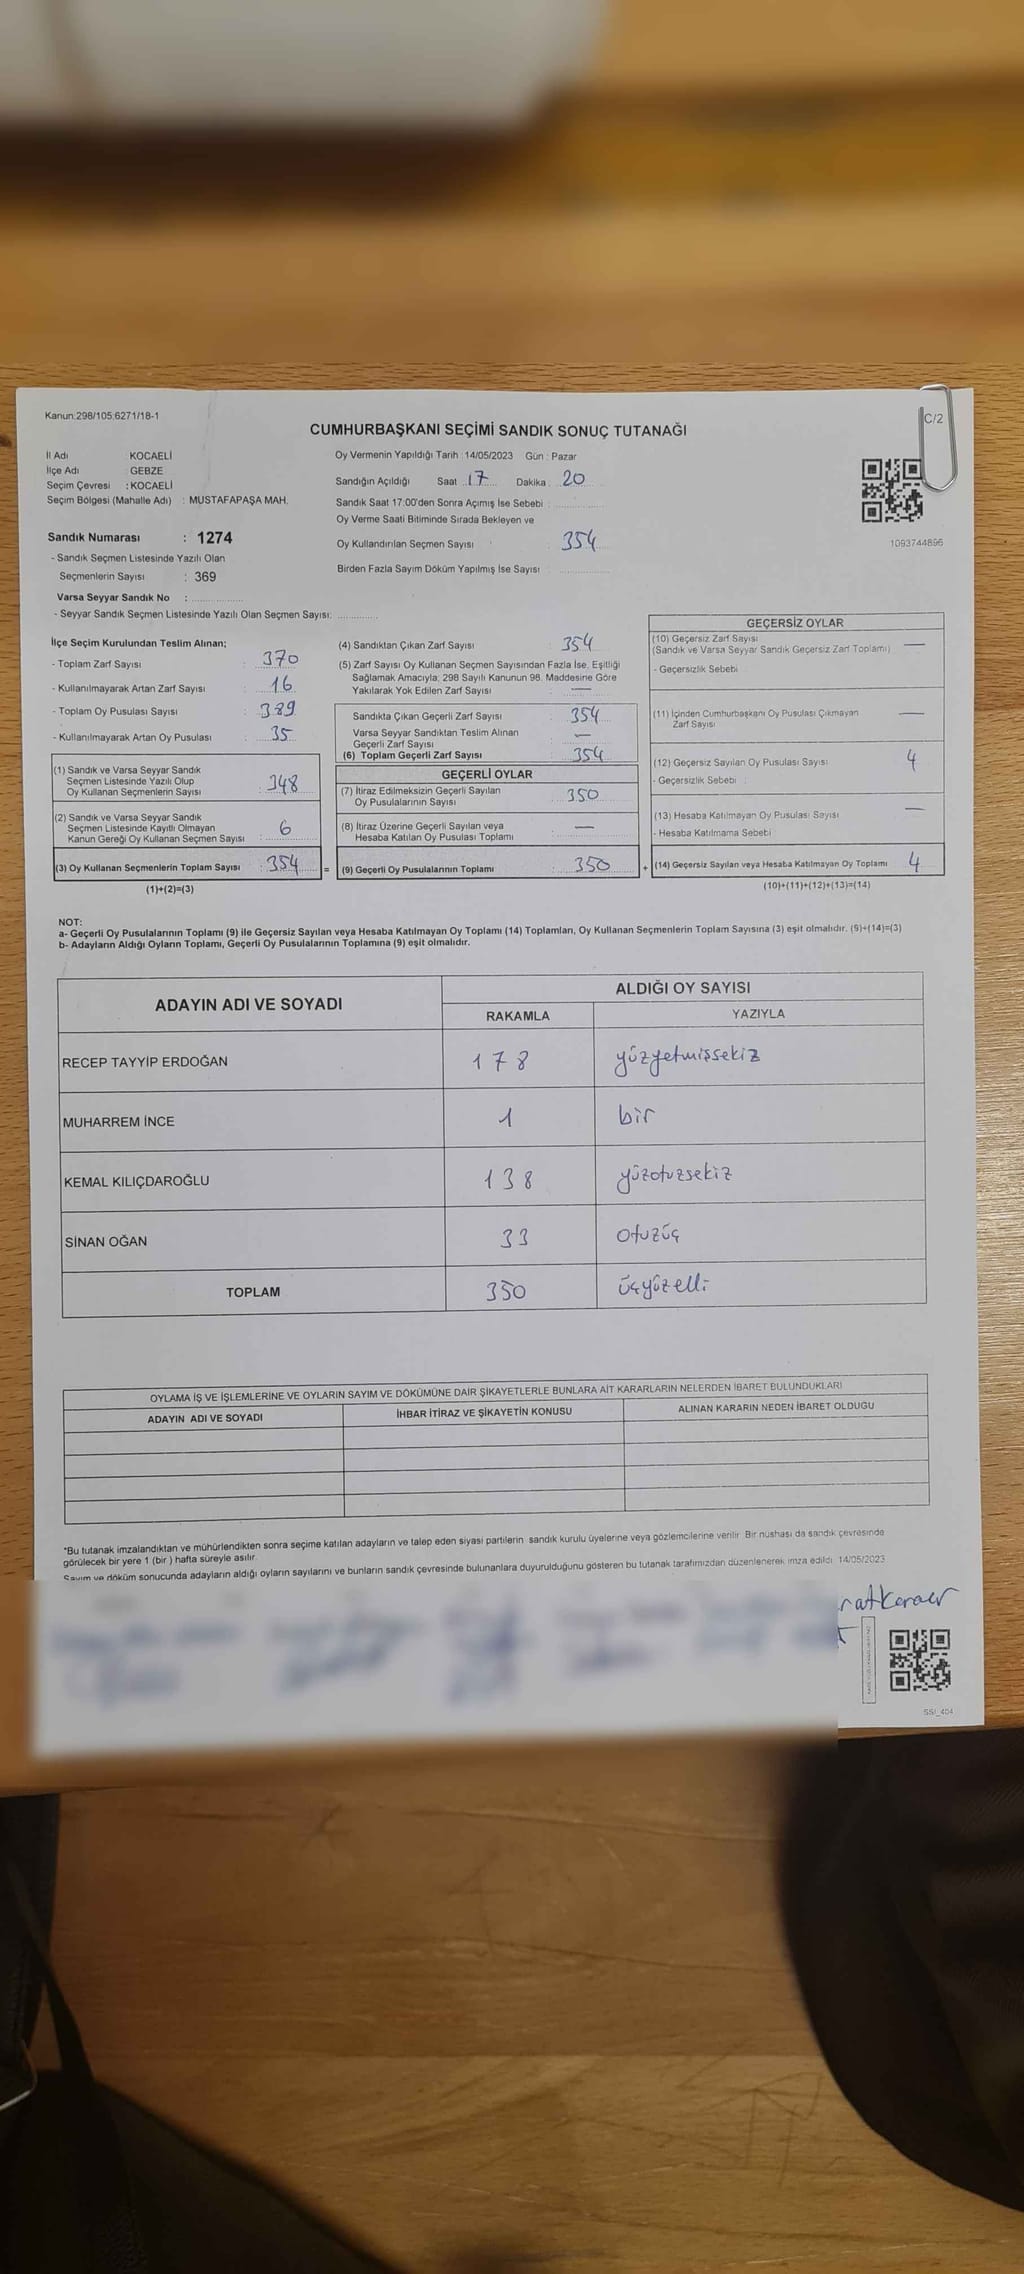 Kanun:298/105,6271/18-1
C/2
CUMHURBAŞKANI SEÇİMİ SANDIK SONUÇ TUTANAĞI
İl Adı KOCAELİ
İlçe Adı GEBZE
Seçim Çevresi : KOCAELİ
Seçim Bölgesi (Mahalle Adı) : MUSTAFAPAŞA MAH.
Sandık Numarası : 1274
- Sandık Seçmen Listesinde Yazılı Olan
Seçmenlerin Sayısı : 369
Varsa Seyyar Sandık No :
- Seyyar Sandık Seçmen Listesinde Yazılı Olan Seçmen Sayısı:
Oy Vermenin Yapıldığı Tarih : 14/05/2023 Gün : Pazar
Sandığın Açıldığı Saat 17 Dakika 20
Sandık Saat 17:00'den Sonra Açımış İse Sebebi :
Oy Verme Saati Bitiminde Sırada Bekleyen ve
Oy Kullandırılan Seçmen Sayısı : 354
Birden Fazla Sayım Döküm Yapılmış İse Sayısı :
1093744896
İlçe Seçim Kurulundan Teslim Alınan;
- Toplam Zarf Sayısı : 370
- Kullanılmayarak Artan Zarf Sayısı : 16
- Toplam Oy Pusulası Sayısı : 389
- Kullanılmayarak Artan Oy Pusulası : 35
(1) Sandık ve Varsa Seyyar Sandık
Seçmen Listesinde Yazılı Olup
Oy Kullanan Seçmenlerin Sayısı : 348
(2) Sandık ve Varsa Seyyar Sandık
Seçmen Listesinde Kayıtlı Olmayan
Kanun Gereği Oy Kullanan Seçmen Sayısı : 6
(3) Oy Kullanan Seçmenlerin Toplam Sayısı : 354
(1)+(2)=(3)
(4) Sandıktan Çıkan Zarf Sayısı : 354
(5) Zarf Sayısı Oy Kullanan Seçmen Sayısından Fazla İse, Eşitliği
Sağlamak Amacıyla; 298 Sayılı Kanunun 98. Maddesine Göre
Yakılarak Yok Edilen Zarf Sayısı : —
Sandıkta Çıkan Geçerli Zarf Sayısı : 354
Varsa Seyyar Sandıktan Teslim Alınan
Geçerli Zarf Sayısı : —
(6) Toplam Geçerli Zarf Sayısı : 354
GEÇERLİ OYLAR
(7) İtiraz Edilmeksizin Geçerli Sayılan
Oy Pusulalarının Sayısı : 350
(8) İtiraz Üzerine Geçerli Sayılan veya
Hesaba Katılan Oy Pusulası Toplamı : —
= (9) Geçerli Oy Pusulalarının Toplamı : 350
GEÇERSİZ OYLAR
(10) Geçersiz Zarf Sayısı —
(Sandık ve Varsa Seyyar Sandık Geçersiz Zarf Toplamı)
- Geçersizlik Sebebi
(11) İçinden Cumhurbaşkanı Oy Pusulası Çıkmayan —
Zarf Sayısı
(12) Geçersiz Sayılan Oy Pusulası Sayısı 4
- Geçersizlik Sebebi :
(13) Hesaba Katılmayan Oy Pusulası Sayısı —
- Hesaba Katılmama Sebebi
+ (14) Geçersiz Sayılan veya Hesaba Katılmayan Oy Toplamı 4
(10)+(11)+(12)+(13)=(14)
NOT:
a- Geçerli Oy Pusulalarının Toplamı (9) ile Geçersiz Sayılan veya Hesaba Katılmayan Oy Toplamı (14) Toplamları, Oy Kullanan Seçmenlerin Toplam Sayısına (3) eşit olmalıdır. (9)+(14)=(3)
b- Adayların Aldığı Oyların Toplamı, Geçerli Oy Pusulalarının Toplamına (9) eşit olmalıdır.
ADAYIN ADI VE SOYADI ALDIĞI OY SAYISI
RAKAMLA YAZIYLA
RECEP TAYYİP ERDOĞAN 178 yüzyetmişsekiz
MUHARREM İNCE 1 bir
KEMAL KILIÇDAROĞLU 138 yüzotuzsekiz
SİNAN OĞAN 33 otuzüç
TOPLAM 350 üçyüzelli
OYLAMA İŞ VE İŞLEMLERİNE VE OYLARIN SAYIM VE DÖKÜMÜNE DAİR ŞİKAYETLERLE BUNLARA AİT KARARLARIN NELERDEN İBARET BULUNDUKLARI
ADAYIN ADI VE SOYADI İHBAR İTİRAZ VE ŞİKAYETİN KONUSU ALINAN KARARIN NEDEN İBARET OLDUĞU
*Bu tutanak imzalandıktan ve mühürlendikten sonra seçime katılan adayların ve talep eden siyasi partilerin sandık kurulu üyelerine veya gözlemcilerine verilir. Bir nüshası da sandık çevresinde
görülecek bir yere 1 (bir) hafta süreyle asılır.
Sayım ve döküm sonucunda adayların aldığı oyların sayılarını ve bunların sandık çevresinde bulunanlara duyurulduğunu gösteren bu tutanak tarafımızdan düzenlenerek imza edildi. 14/05/2023
SSI_404